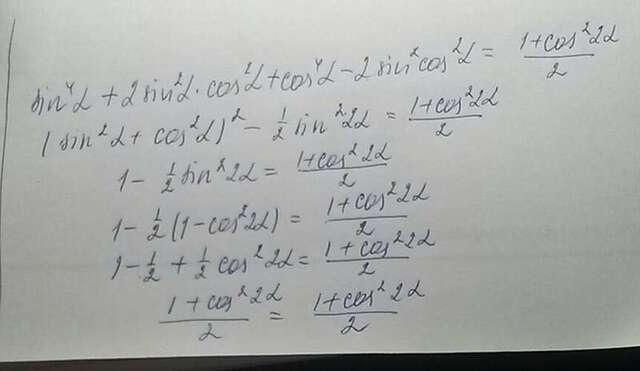 sin⁴α + 2sin²α · cos²α + cos⁴α − 2sin²cos²α = (1+cos²2α)/2
(sin²α + cos²α)² − ½ sin²2α = (1+cos²2α)/2
1 − ½ sin²2α = (1+cos²2α)/2
1 − ½ (1 − cos²2α) = (1+cos²2α)/2
1 − ½ + ½ cos²2α = (1+cos²2α)/2
(1+cos²2α)/2 = (1+cos²2α)/2